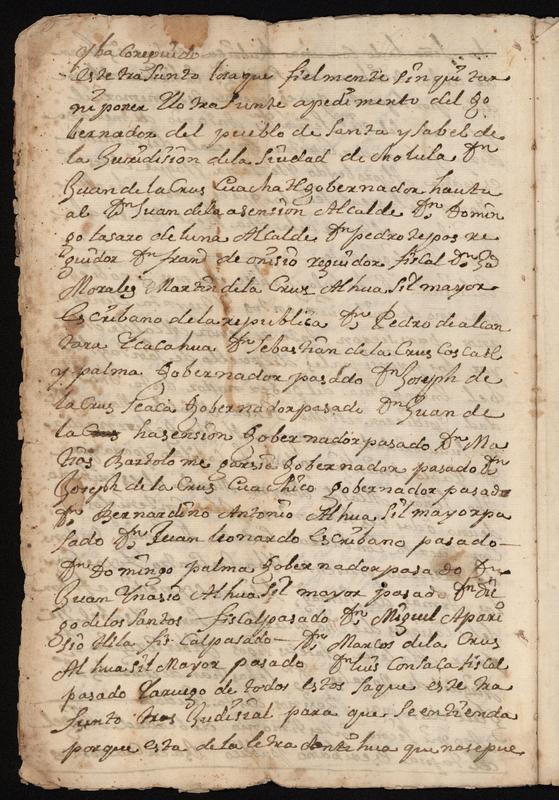 y ba Corexido
Este trasunto losaque fielmente sin quitar
ni poner Uo trasunte apedimento del go
bernador del pueblo de Santa ysabel de
la Juridision dela siudad de cholula Dn
Juan de la Crus Cuachatl gobernador hautu
al Dn Juan dela asension Alcalde Dn Domin
go lasaro de luna Alcalde Dn pedro tepos re
guidor Dn fran de onisio reguidor fiscal Dn
Morales Martin dela Crus Alhuasil mayor
Escribano dela republica Dn Pedro de alcan
tara Dn Sebastian de la Crus Coscatl
y palma Gobernador pasado Dn Joseph de
la Crus Gobernador pasado Dn Juan de
la hasension Gobernador pasado Dn Ma
tias Bartolome garsia Gobernador pasado Dn
Joseph de la Crus Cuachico gobernador pasado
Dn Bernardino Antonio Alhuasil mayor pa
sado Dn Juan leonardo Escribano pasado
Dn Domingo palma Gobernador pasado Dn
Juan Ynasio Alhuasil mayor pasado Dn die
go delos Santos fiscal pasado Dn Miguel Apari
sio fis Cal pasado Dn Marcos dela Crus
Alhuasil Mayor pasado Dn luis Consaca fiscal
pasado de todos Estos saque este tra
sunto tras Judisial para que Se entienda
porque esta de la letra antihua que nosepue